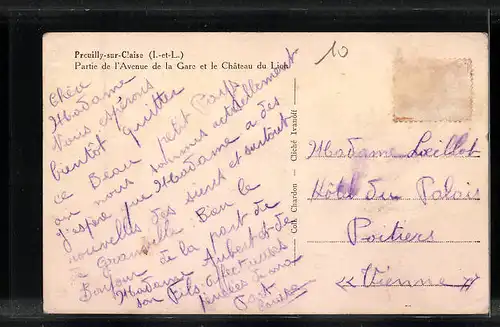 Preuilly-sur-Claise (I.-et-L.)
Partie de l'Avenue de la Gare et le Château du Lion
10
Chère
Madame
Nous espérons
bientôt quitter
ce Beau petit Pays
ou nous sommes actuellement
J'espère que Madame a des
nouvelles des siens et surtout
de Granville Bien le
Bonjour de la part de
Madame Aubert et de
son Fils Affectueuses
pensées
Coll. Chardon - Cliché Ivanoff
Madame Lœillot
Hôtel du Palais
Poitiers
« Vienne »